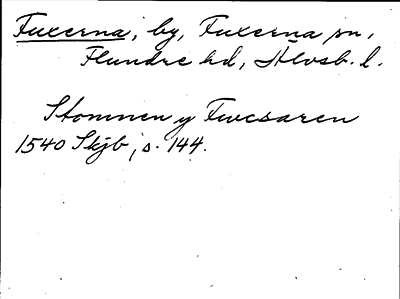 Fuxerna, by, Fuxerna sn,
Flundre hd, Älvsb. l.
Stommen y Fwcsaren
1540 Skjb, s. 144.